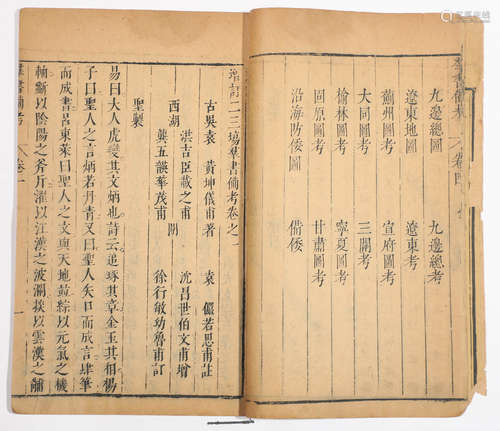 九邊總圖 九邊總考
遼東地圖 遼東考
薊州圖考 宣府圖考
大同圖考 三關考
榆林圖考 寧夏圖考
固原圖考 甘肅圖考
沿海防倭圖 備倭
增訂二三塲羣書備考卷之一
古吳袁 黃坤儀甫著 袁 儼若思甫註
西湖 洪吉臣載之甫 沈昌世伯文甫增
龔五韺華茂甫 閱 徐行敏幼魯甫訂
聖製
易曰大人虎變其文炳也詩云追琢其章金玉其相楊
子曰聖人之言炳若丹青又曰聖人矢口而成言肆筆
而成書呂東萊曰聖人之文與天地並粽以元氣之機
軸斵以陰陽之斧斤濯以江漢之波瀾挨以雲漢之黼
羣書備考 卷一